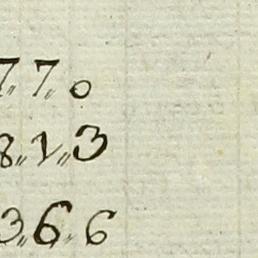 7„7„0
8„1„3
3„6„6